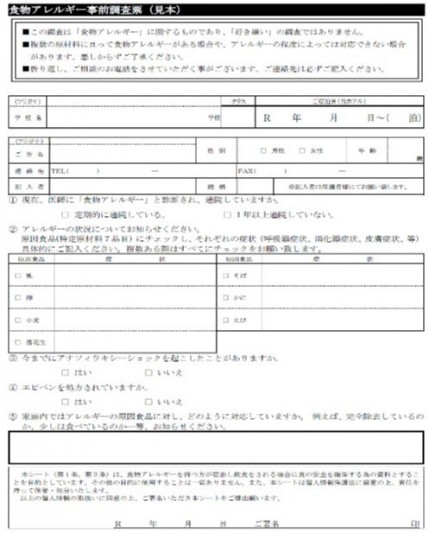 食物アレルギー事前調査票（見本）
■この調査は「食物アレルギー」に関するものであり、「好き嫌い」の調査ではありません。
■複数の原材料に亘って食物アレルギーがある場合や、アレルギーの程度によっては対応できない場合
があります。悪しからずご了承ください。
■折り返し、ご相談のお電話をさせていただく事がございます。ご連絡先は必ずご記入ください。
(フリガナ) クラス ご宿泊日
学校名 学校 R 年 月 日〜( 泊)
(フリガナ)
性別 □ 男性 □ 女性 年齢 歳
連絡先 TEL( ) ー FAX( ) ー
記入者 続柄 ※記入者は保護者様にてお願い致します。
① 現在、医師に「食物アレルギー」と診断され、通院していますか。
□ 定期的に通院している。 □ 1年以上通院していない。
② アレルギーの状況についてお知らせください。
原因食品(特定原材料7品目)にチェックし、それぞれの症状(呼吸器症状、消化器症状、皮膚症状、等)
具体的にご記入ください。複数ある際はすべてにチェックをお願い致します。
原因食品 症 状 原因食品 症 状
□ 乳 □ そば
□ 卵 □ かに
□ 小麦 □ えび
□ 落花生
③ 今までにアナフィラキシーショックを起こしたことがありますか。
□ はい □ いいえ
④ エピペンを処方されていますか。
□ はい □ いいえ
⑤ 家庭内ではアレルギーの原因食品に対し、どのように対応していますか。例えば、完全除去しているの
か、少しは食べているのか…等、お知らせください。
本シート（第1条、第2条）は、食物アレルギーを持つ方が宿泊し飲食をされる場合に食の安全を確保する為の資料とするこ
とを目的としています。その他の目的に使用することは一切ありません。また、本シートは個人情報保護法に留意の上、責任を
持って保管・処分いたします。
以上の個人情報の取扱いに同意の上、ご署名いただき本シートをご提出願います。
R 年 月 日 ご署名 印